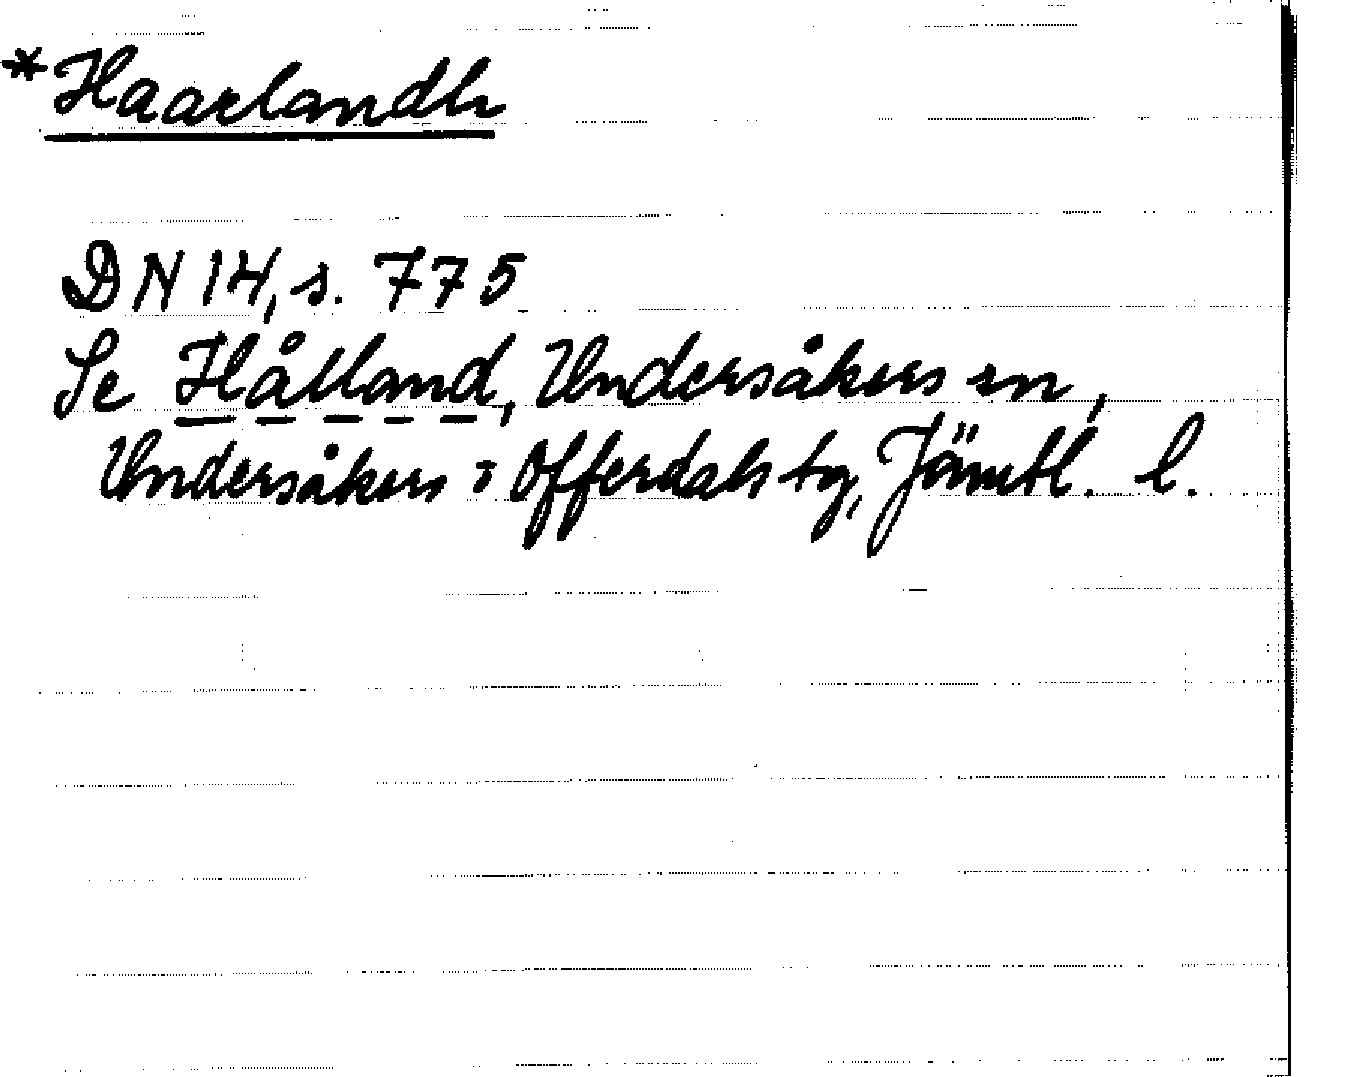 *Haarlandh
DN 14, s. 775
Se Hålland, Undersåkers sn,
Undersåkers o Offerdals tg, Jämtl. l.